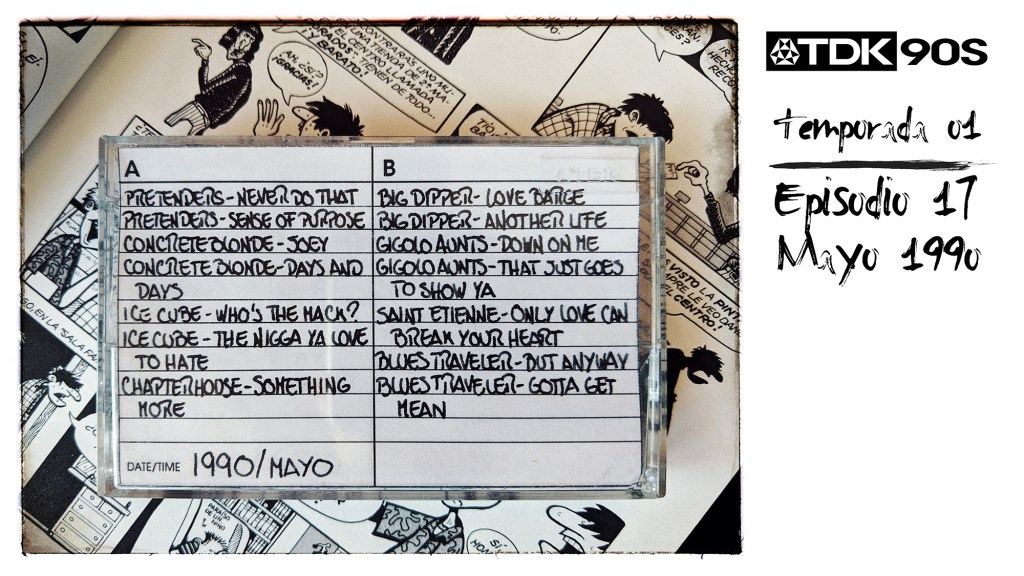 TDK 90S
temporada 01
Episodio 17
Mayo 1990
AH, ¿SÍ?
¡GRACIAS!
CONTRARÁS UNO MU-
UNA TIENDA DE 2ª MA-
EL CENTRO LLAMADA
TIENEN DE TODO...
¡Y BARATO!
A
PRETENDERS - NEVER DO THAT
PRETENDERS - SENSE OF PURPOSE
CONCRETE BLONDE - JOEY
CONCRETE BLONDE - DAYS AND
DAYS
ICE CUBE - WHO'S THE MACK?
ICE CUBE - THE NIGGA YA LOVE
TO HATE
CHAPTERHOUSE - SOMETHING
MORE
DATE/TIME 1990/MAYO
B
BIG DIPPER - LOVE BARGE
BIG DIPPER - ANOTHER LIFE
GIGOLO AUNTS - DOWN ON ME
GIGOLO AUNTS - THAT JUST GOES
TO SHOW YA
SAINT ETIENNE - ONLY LOVE CAN
BREAK YOUR HEART
BLUES TRAVELER - BUT ANYWAY
BLUES TRAVELER - GOTTA GET
MEAN
VISTO LA PINT
PRE LE VEO DAN
EL CENTRO.
PARADO
DE UN